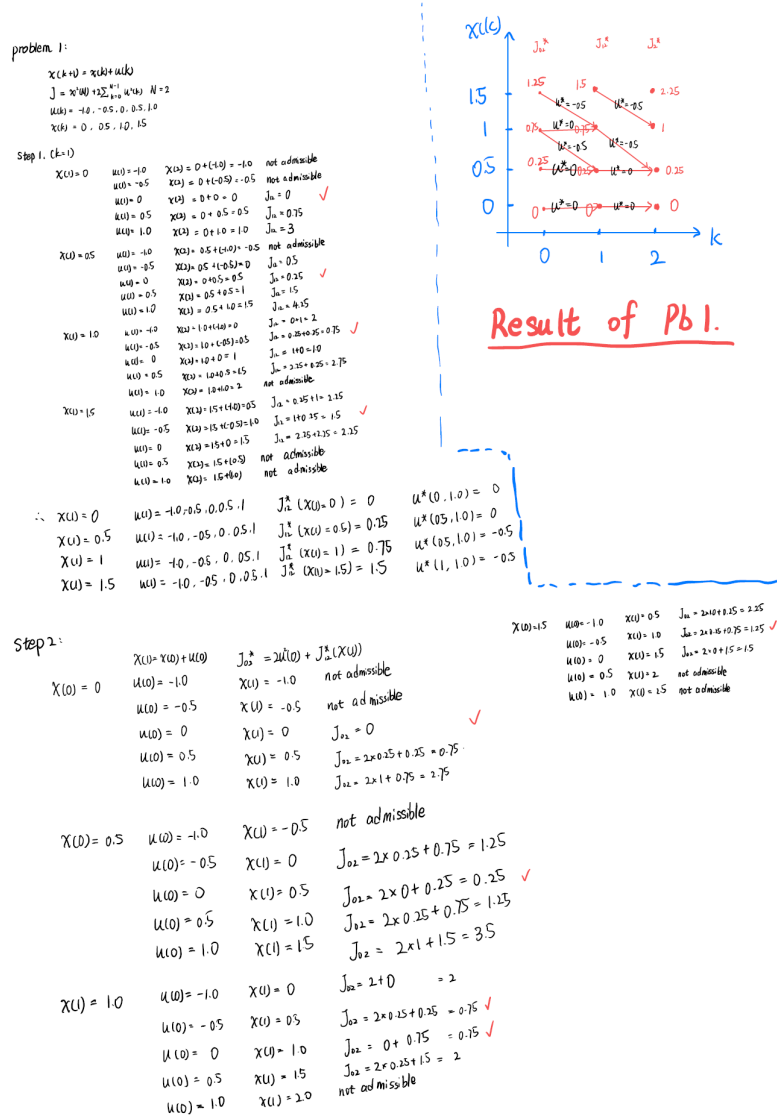 problem 1:
x(k+1) = x(k)+u(k)
J = x²(N) + 2∑ᴺ⁻¹ₖ₌₀ u²(k) N=2
u(k) = -1.0, -0.5, 0, 0.5, 1.0
x(k) = 0, 0.5, 1.0, 1.5
Step 1. (k=1)
x(1)=0 u(1)=-1.0 x(2)=0+(-1.0)=-1.0 not admissible
u(1)=-0.5 x(2)=0+(-0.5)=-0.5 not admissible
u(1)=0 x(2)=0+0=0 J₁₂=0 ✓
u(1)=0.5 x(2)=0+0.5=0.5 J₁₂=0.75
u(1)=1.0 x(2)=0+1.0=1.0 J₁₂=3
x(1)=0.5 u(1)=-1.0 x(2)=0.5+(-1.0)=-0.5 not admissible
u(1)=-0.5 x(2)=0.5+(-0.5)=0 J₁₂=0.5
u(1)=0 x(2)=0+0.5=0.5 J₁₂=0.25 ✓
u(1)=0.5 x(2)=0.5+0.5=1 J₁₂=1.5
u(1)=1.0 x(2)=0.5+1.0=1.5 J₁₂=4.25
x(1)=1.0 u(1)=-1.0 x(2)=1.0+(-1.0)=0 J₁₂=0+1=2
u(1)=-0.5 x(2)=1.0+(-0.5)=0.5 J₁₂=0.25+0.25=0.75 ✓
u(1)=0 x(2)=1.0+0=1 J₁₂=1+0=1.0
u(1)=0.5 x(2)=1.0+0.5=1.5 J₁₂=2.25+0.25=2.75
u(1)=1.0 x(2)=1.0+1.0=2 not admissible
x(1)=1.5 u(1)=-1.0 x(2)=1.5+(-1.0)=0.5 J₁₂=0.25+1=2.25
u(1)=-0.5 x(2)=1.5+(-0.5)=1.0 J₁₂=1+0.25=1.5 ✓
u(1)=0 x(2)=1.5+0=1.5 J₁₂=2.25+2.25=2.25
u(1)=0.5 x(2)=1.5+(0.5) not admissible
u(1)=1.0 x(2)=1.5+(1.0) not admissible
∴ x(1)=0 u(1)=-1.0,-0.5,0,0.5,1 J₁₂*(x(1)=0)=0 u*(0,1.0)=0
x(1)=0.5 u(1)=-1.0,-0.5,0,0.5,1 J₁₂*(x(1)=0.5)=0.25 u*(0.5,1.0)=0
x(1)=1 u(1)=-1.0,-0.5,0,0.5,1 J₁₂*(x(1)=1)=0.75 u*(0.5,1.0)=-0.5
x(1)=1.5 u(1)=-1.0,-0.5,0,0.5,1 J₁₂*(x(1)=1.5)=1.5 u*(1,1.0)=-0.5
x(k) J₀₂* J₁₂* J₂*
1.5 1.25 u*=-0.5 1.5 u*=-0.5 2.25
1 0.75 u*=0 0.75 1
u*=-0.5 u*=-0.5
0.5 0.25 u*=0 0.25 u*=0 0.25
0 0 u*=0 1 u*=0 0
0 1 2 k
Result of Pb 1.
Step 2:
x(1)=x(0)+u(0) J₀₂*=2u²(0)+J₁₂*(x(1))
x(0)=0 u(0)=-1.0 x(1)=-1.0 not admissible
u(0)=-0.5 x(1)=-0.5 not admissible
u(0)=0 x(1)=0 J₀₂=0 ✓
u(0)=0.5 x(1)=0.5 J₀₂=2×0.25+0.25=0.75
u(0)=1.0 x(1)=1.0 J₀₂=2×1+0.75=2.75
x(0)=0.5 u(0)=-1.0 x(1)=-0.5 not admissible
u(0)=-0.5 x(1)=0 J₀₂=2×0.25+0.75=1.25
u(0)=0 x(1)=0.5 J₀₂=2×0+0.25=0.25 ✓
u(0)=0.5 x(1)=1.0 J₀₂=2×0.25+0.75=1.25
u(0)=1.0 x(1)=1.5 J₀₂=2×1+1.5=3.5
x(1)=1.0 u(0)=-1.0 x(1)=0 J₀₂=2+0 =2
u(0)=-0.5 x(1)=0.5 J₀₂=2×0.25+0.25=0.75 ✓
u(0)=0 x(1)=1.0 J₀₂=0+0.75=0.75 ✓
u(0)=0.5 x(1)=1.5 J₀₂=2×0.25+1.5=2
u(0)=1.0 x(1)=2.0 not admissible
x(0)=1.5 u(0)=-1.0 x(1)=0.5 J₀₂=2×1.0+0.25=2.25
u(0)=-0.5 x(1)=1.0 J₀₂=2×0.25+0.75=1.25 ✓
u(0)=0 x(1)=1.5 J₀₂=2×0+1.5=1.5
u(0)=0.5 x(1)=2 not admissible
u(0)=1.0 x(1)=2.5 not admissible